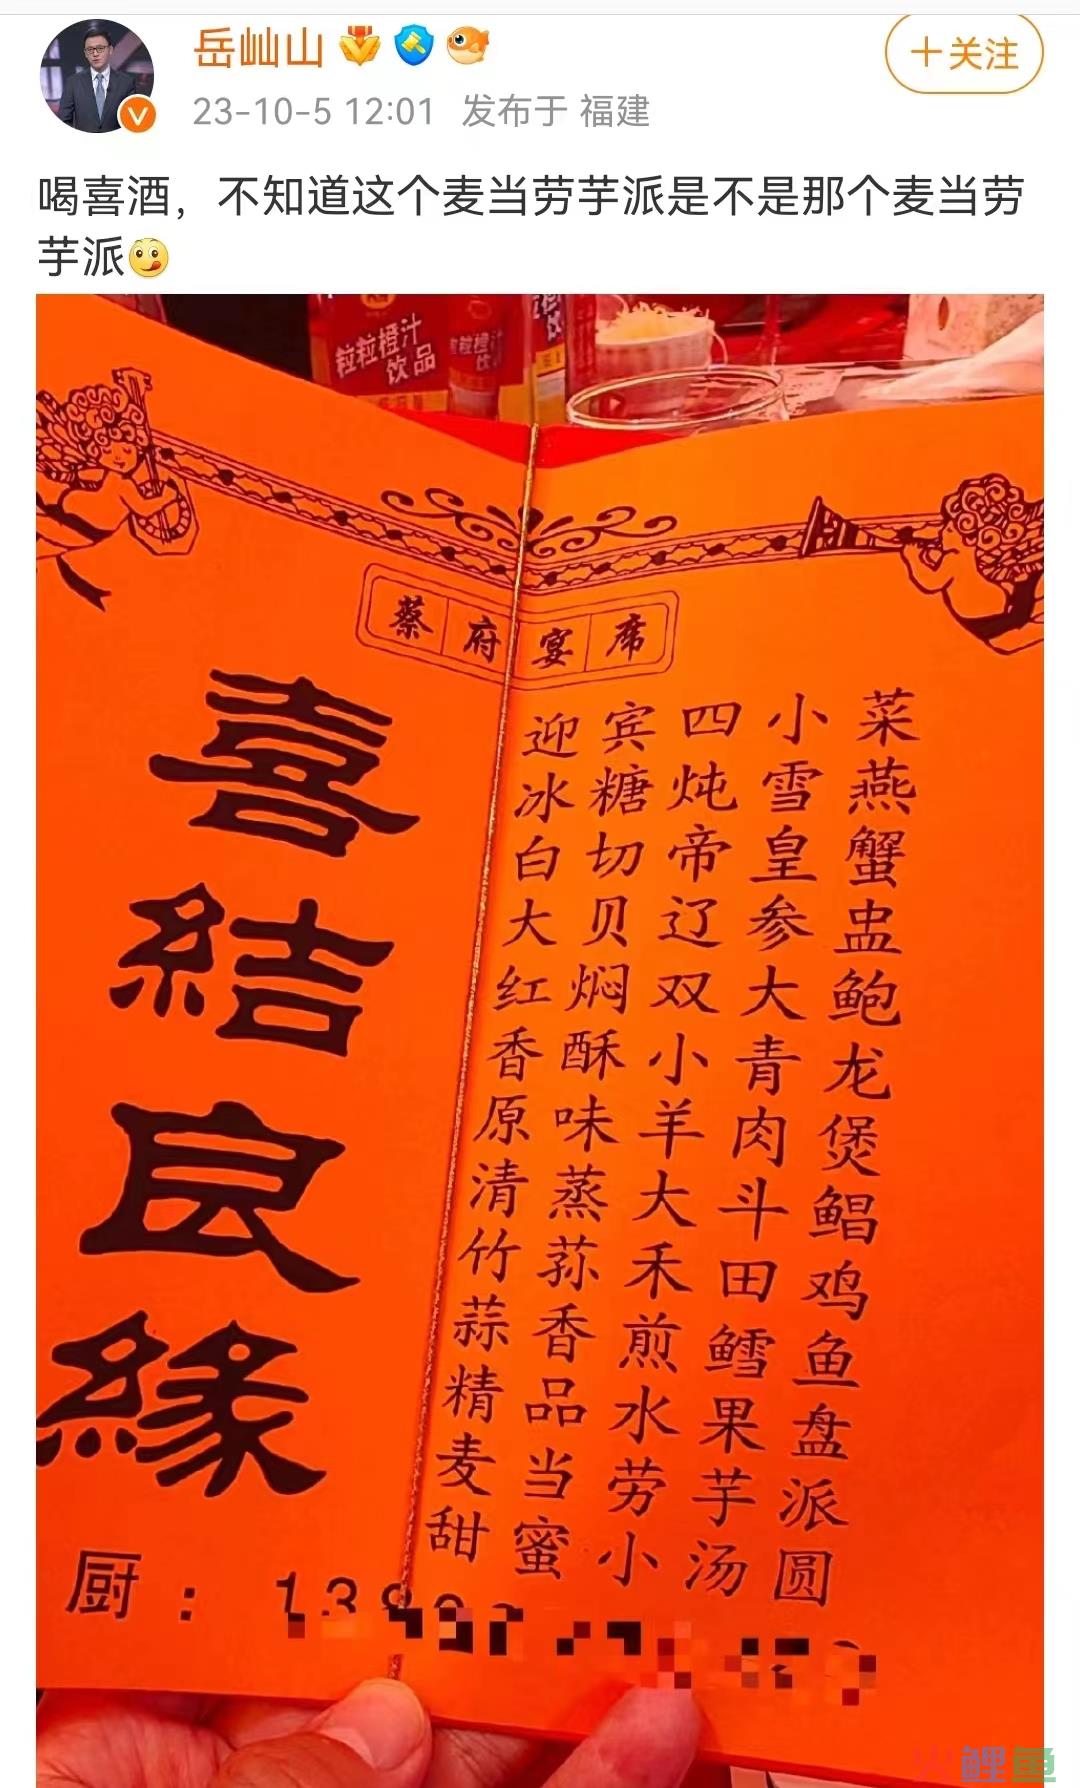 岳屾山
+关注
23-10-5 12:01 发布于 福建
喝喜酒，不知道这个麦当劳芋派是不是那个麦当劳
芋派
粒粒橙汁
饮品
粒粒橙汁
蔡府宴席
喜结良緣
迎宾四小菜
冰糖炖雪燕
白切帝皇蟹
大贝辽参盅
红焖双大鲍
香酥小青龙
原味羊肉煲
清蒸大斗鲳
竹荪禾田鸡
蒜香煎鳕鱼
精品水果盘
麦当劳芋派
甜蜜小汤圆
厨：
火鲤鱼